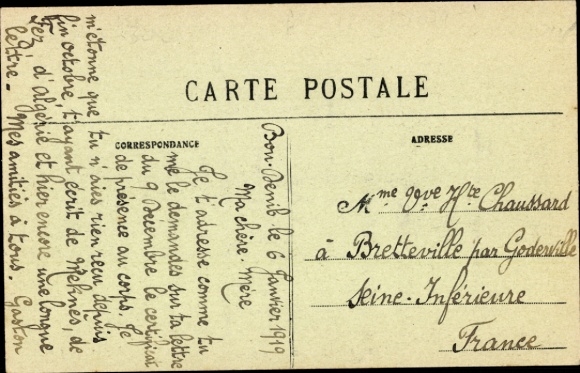 CARTE POSTALE
CORRESPONDANCE
ADRESSE
Bou-Denib le 6 Janvier 1919
Ma chère Mère
Je t'adresse comme tu
me le demandes sur ta lettre
du 9 Décembre le certificat
de présence au corps. Je
m'étonne que tu n'aies rien reçu depuis
fin octobre, t'ayant écrit de Meknes, de
Fez, d'Algérie et hier encore une longue
lettre. Mes amitiés à tous. Gaston
Mme Vve Hte Chaussard
à Bretteville par Goderville
Seine-Inférieure
France